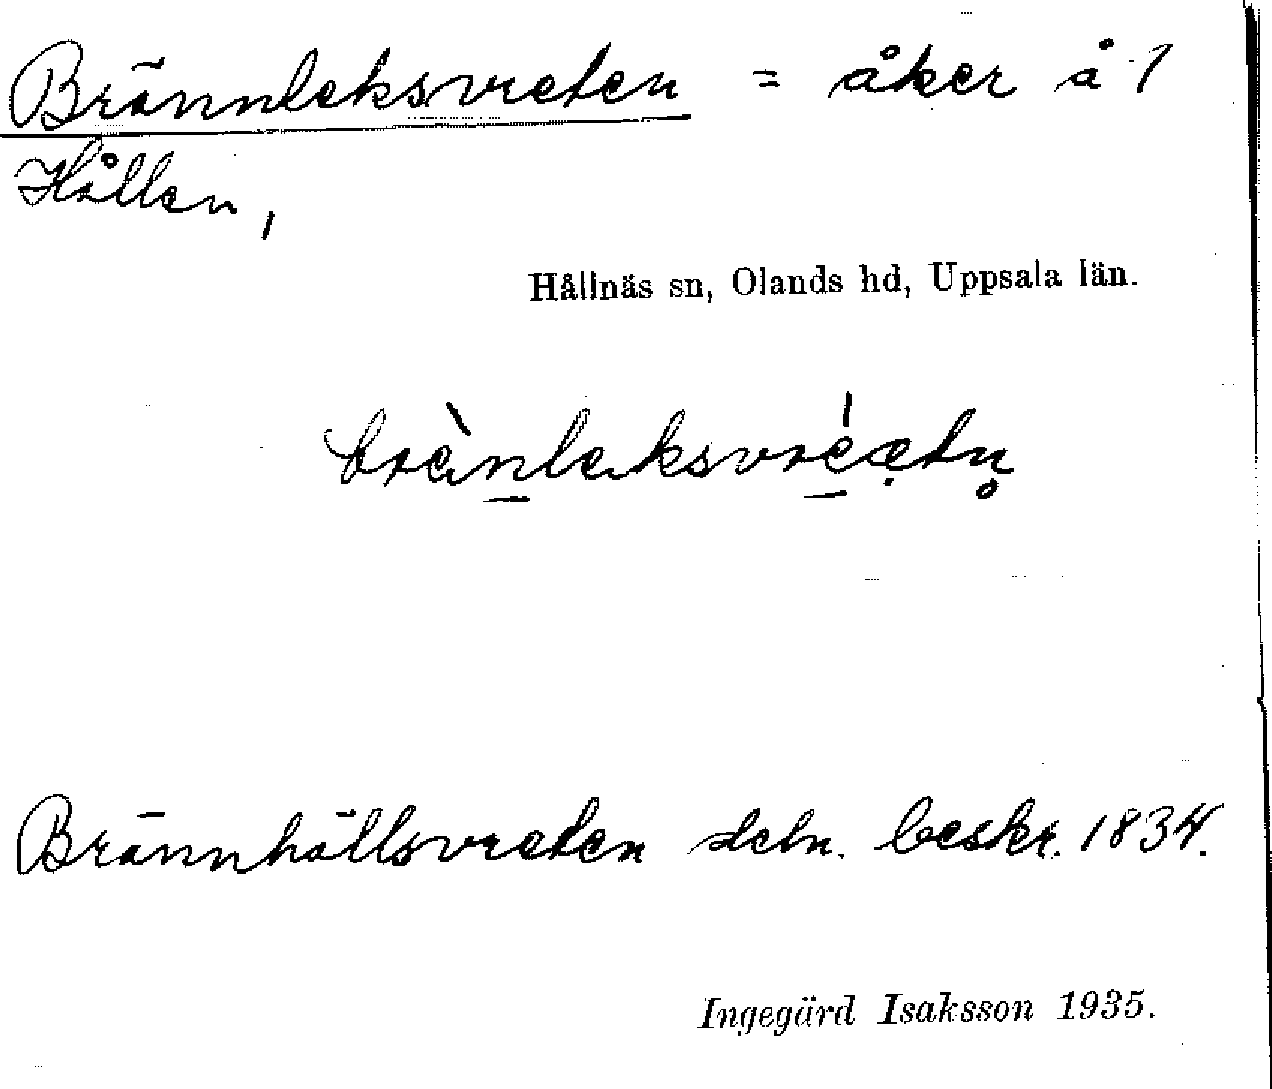 Brännleksvreten = åker å 1
Hållen,
Hållnäs sn, Olands hd, Uppsala län.
Brännhällsvreten deln. beskr. 1834.
Ingegärd Isaksson 1935.